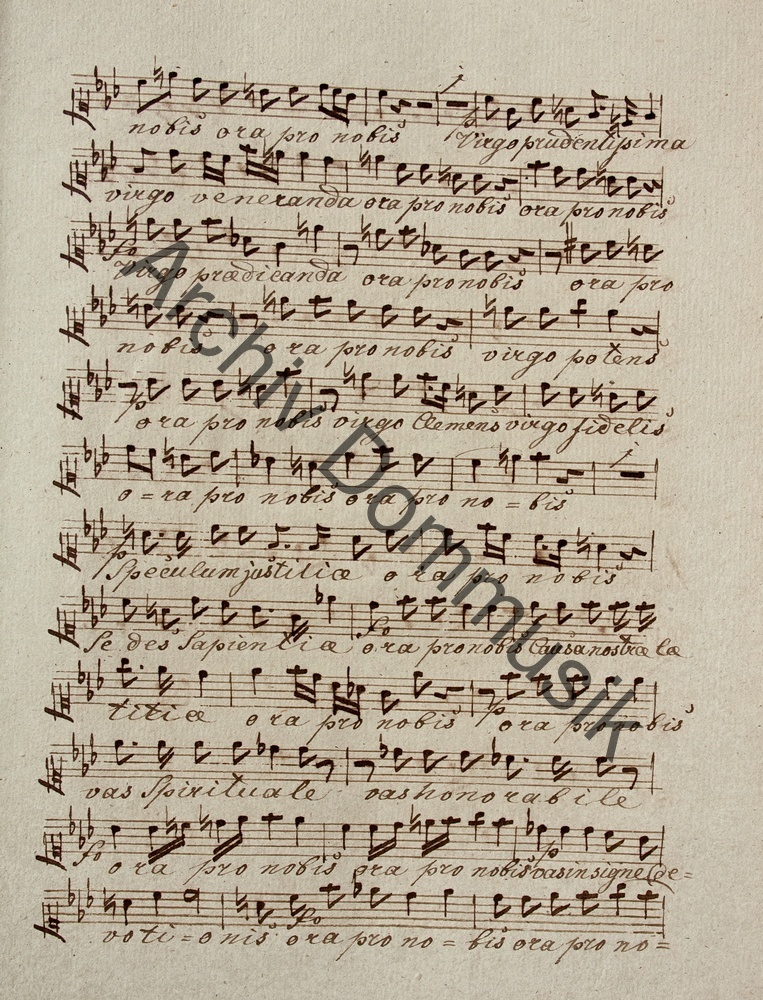 nobis ora pro nobis Virgo prudentissima
virgo veneranda ora pro nobis ora pro nobis
fo Virgo prædicanda ora pro nobis ora pro
nobis ora pro nobis virgo potens
p ora pro nobis virgo Clemens virgo fidelis
o=ra pro nobis ora pro no=bis
p Speculum justitiæ ora pro nobis
Se des Sapientiæ fo ora pro nobis Causa nostræ læ
titiæ ora pro nobis p ora pro nobis
vas Spirituale vas honorabile
fo ora pro nobis ora pro nobis p vas insigne de=
voti=onis fo ora pro no=bis ora pro no=
Archiv Dommusik